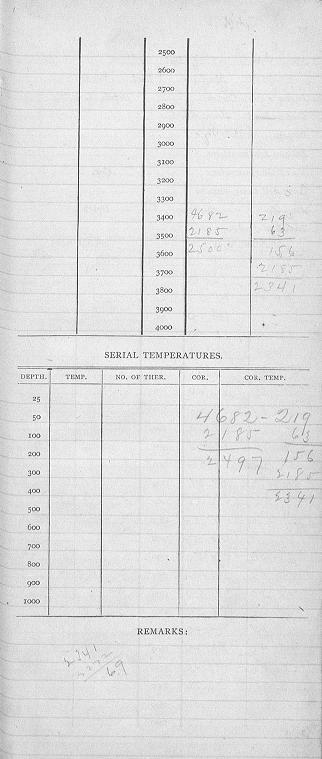 2500
2600
2700
2800
2900
3000
3100
3200
3300
3400 4682 219
3500 2185 63
3600 2500 156
3700 2185
3800 2341
3900
4000
SERIAL TEMPERATURES.
DEPTH. TEMP. NO. OF THER. COR. COR. TEMP.
25
50 4682 - 219
100 2185 63
200 2497 156
300 2185
400 2341
500
600
700
800
900
1000
REMARKS:
2341
2272
69